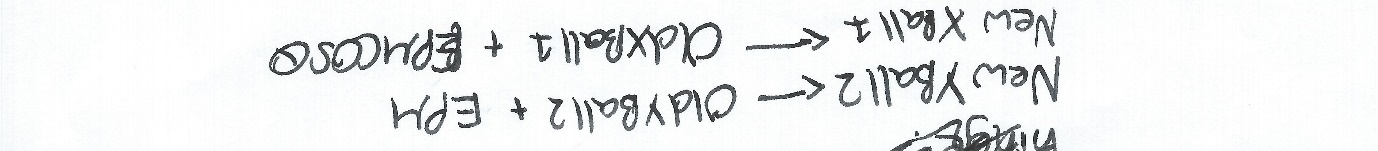 New YBall2 ← OldYBall2 + EPH
New XBall1 ← OldXBall1 + EPHCOSθ